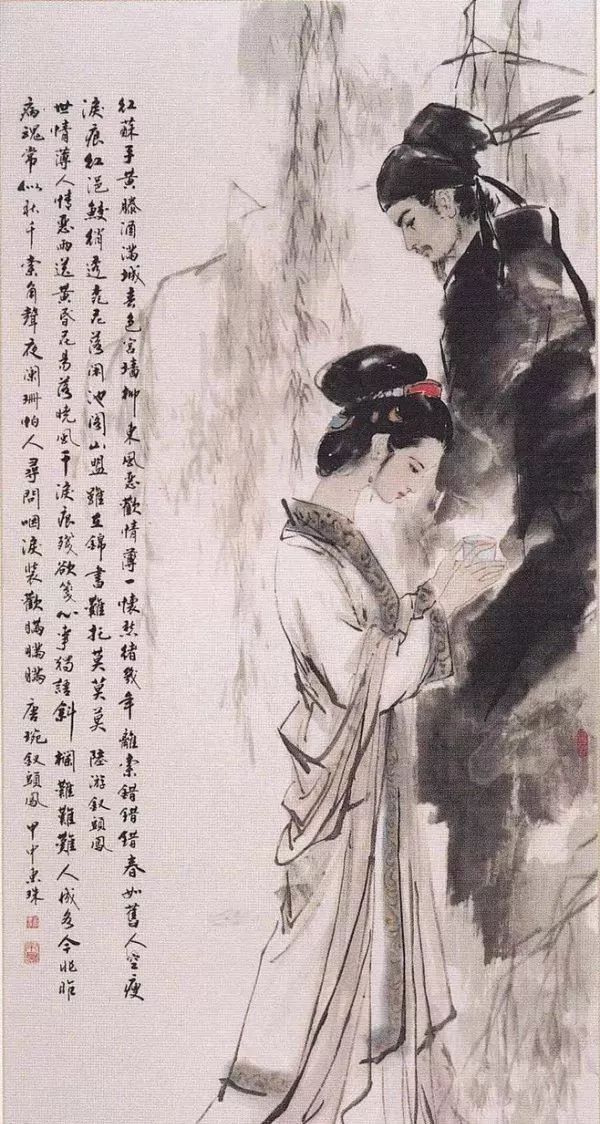 红蘇手黄滕酒滿城春色宮墻柳東風惡歡情薄一懷愁緒幾年離索錯錯錯春如舊人空瘦
淚痕紅浥鮫綃透桃花落閑池閣山盟雖在錦書難托莫莫莫 陸游釵頭鳳
世情薄人情惡雨送黄昏花易落曉風干淚痕殘欲箋心事獨語斜欄難難難人成各今非昨
病魂常似秋千索角聲夜闌珊怕人尋問咽淚裝歡瞞瞞瞞 唐琬釵頭鳳 甲申